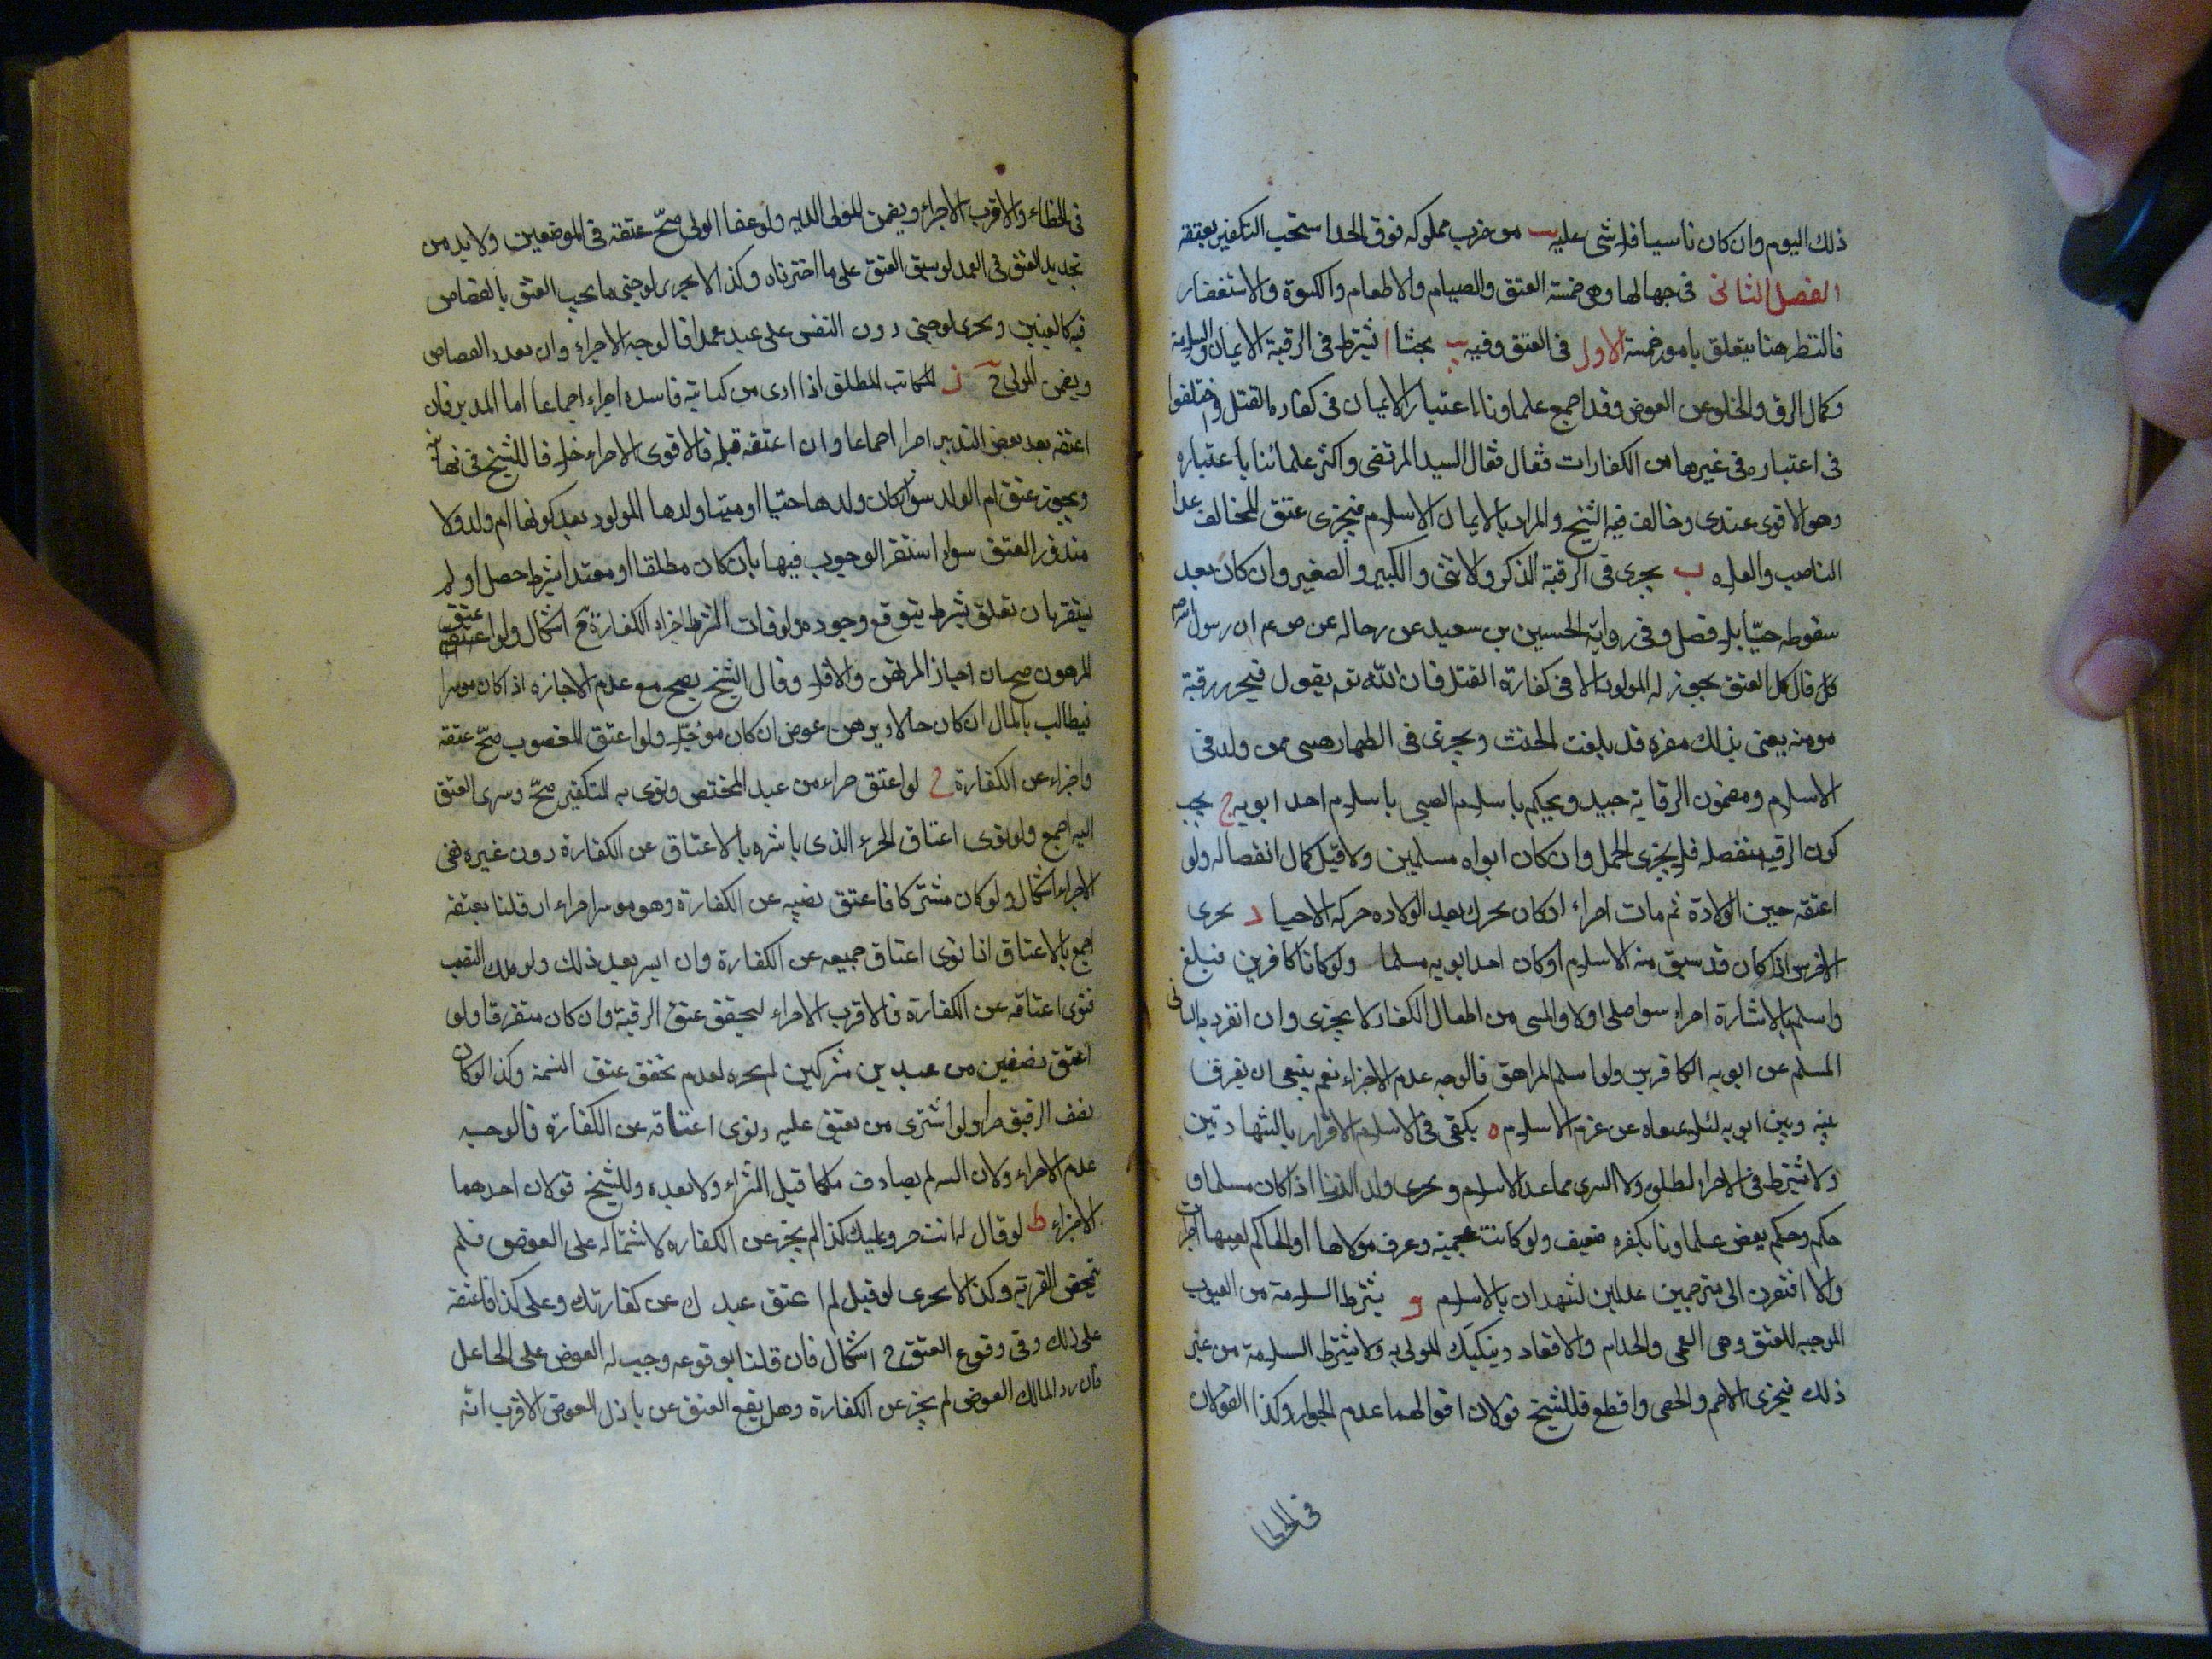 ذلك اليوم وان كان ناسيا فلا شى عليه ب من ضرب مملوكه فوق الحد استحب التكفير بعتقه
الفصل الثانى فى خصالها وهى خمسة العتق والصيام والاطعام والكسوة والاستغفار
فالنظر هنا يتعلق بامور خمسة الاول فى العتق وفيه يب بحثا ا يشترط فى الرقبة الايمان والسلامة
وكمال الرق والخلو عن العوض وقد اجمع علماونا اعتبار الايمان فى كفاره القتل واختلفوا
فى اعتباره فى غيرها من الكفارات فقال فقال السيد المرتضى واكثر علمائنا باعتباره
وهو الاقوى عندى وخالف فيه الشيخ والمراد بالايمان الاسلام فيجزى عتق المخالف عدا
الناصب والغلاه ب يجزى فى الرقبة الذكر والانثى والكبير والصغير وان كان بعد
سقوطه حيّا بلا فصل وفى رواية الحسين بن سعيد عن رجاله عن ص ع م ان رسول الله ص
قال كل العتق يجوز له المولود الا فى كفارة القتل فان الله تع يقول فتحرير رقبة
مومنه يعنى بذلك مقره قد بلغت الحنث ويجزى فى الظهار صبى ممن ولد فى
الاسلام ومضمون الرواية جيد ويحكم باسلام الصبى باسلام احد ابويه ج يجب
كون الرقبة منفصله فلا يجزى الحمل وان كان ابواه مسلمين ولا قبل كمال انفصاله ولو
اعتقه حين الولادة ثم مات اجزاء ان كان تحرك بعد الولاده حركة الاحيا د يجزى
الاخرس اذا كان قد سبق منه الاسلام او كان احد ابويه مسلما ولو كانا كافرين فبلغ
واسلم بالاشارة اجزاء سوا صلى اولا والمسبى من اطفال الكفار لا يجزى وان انفرد به السابى
المسلم عن ابويه الكافرين ولو اسلم المراهق فالوجه عدم الاجزاء نعم ينبغى ان يفرق
بينه وبين ابويه لئلا عن عزم الاسلام ه يكفى فى الاسلام الاقرار بالشهادتين
ولا يشترط فى الاجزاء الصلوة ولا التبرى مما عدا الاسلام ويجزى ولد الزنا اذا كان مسلما او
حكم وحكم بعض علماونا بكفره ضعيف ولو كانت عجمية وعرف مولاها او الحاكم لغتها اجزات
والا افتقرت الى مترجمين عدلين تشهدان بالاسلام و يشترط السلامة من العيوب
الموجبه للعتق وهى العمى والجذام والاقعاد وتنكيل المولى به ولا يشترط السلامة من غير
ذلك فيجزى الاصم والخصى واقطع فللشيخ قولان اقواهما عدم الجواز وكذا القولان
فى الخطا
فى الخطاء والاقرب الاجزاء ويضمن المولى الديه ولو عفا الولى صحّ عتقه فى الموضعين ولا بد من
تجديد العتق فى العمد لو سبق العتق على ما اخترناه وكذا لا يجزى لو جنى ما يجب العتق بالقصاص
فيه كالعينين ويجزى لو جنى دون النفس على عبد عمدا فالوجه الاجزاء وان تعدد القصاص
ويضمن المولى ح ز المكاتب المطلق اذا ادى من كتابته فاسده اجزاء اجماعا اما المدبر فان
اعتقه بعد نقض التدبير اجزا اجماعا وان اعتقه قبله فالاقوى الاجزاء خلافا للشيخ فى نهايته
ويجوز عتق ام الولد سوا كان ولدها حيّا او ميتا ولدها المولود بعد كونها ام ولد ولا
منذور العتق سواء استقر الوجوب فيها بان كان مطلقا او مقتدا بشرط حصل او لم
يستقر بان تعلق بشرط يتوقع وجوده ولو فات الشرط اجزاء الكفارة مع اشكال ولو اعتق
المرهون صح ان اجاز المرتهن والا فلا وقال الشيخ يصح مع عدم الاجازه اذا كان موسرا
فيطالب بالمال ان كان حالا ويرهن عوض ان كان موجلا ولو اعتق المغصوب صحّ عتقه
واجزاء عن الكفارة ح لو اعتق جزاء من عبد المختص ونوى به التكفير صحّ وسرى العتق
اليه اجمع ولو نوى اعتاق الجزء الذى باشره بالاعتاق عن الكفارة دون غيره ففى
الاجزاء اشكال ولو كان مشتركا فاعتق نصيبه عن الكفارة وهو موسر اجزاء ان قلنا بعتقه
اجمع بالاعتاق اذا نوى اعتاق جميعه عن الكفارة وان ايسر بعد ذلك ولو ملك النصيب
فنوى اعتاقه عن الكفارة فالاقرب الاجزاء لتحقق عتق الرقبة وان كان متفرقا ولو
اعتق نصفين من عبدين مشتركين لم يجزه لعدم تحقق عتق النسمة وكذا لو كان
نصف الرقيق حرا ولو اشترى من يعتق عليه ونوى اعتاقه عن الكفارة فالوجه
عدم الاجزاء ولان النيه لم يصادف ملكا قبل الشراء ولا بعده وللشيخ قولان احدهما
الاجزاء ط لو قال له انت حر وعليك كذا لم يجز عن الكفاره لاشتماله على العوض فلم
تتمحض القربة وكذا لا يجزى لو قيل لم ا عتق عبدك عن كفارتك وعلى كذا فاعتقه
على ذلك وفى وقوع العتق ح اشكال فان قلنا بوقوعه وجب له العوض على الجاعل
فان رد المالك العوض لم يجز عن الكفارة وهل يقع العتق عن باذل العوض الاقرب انّه